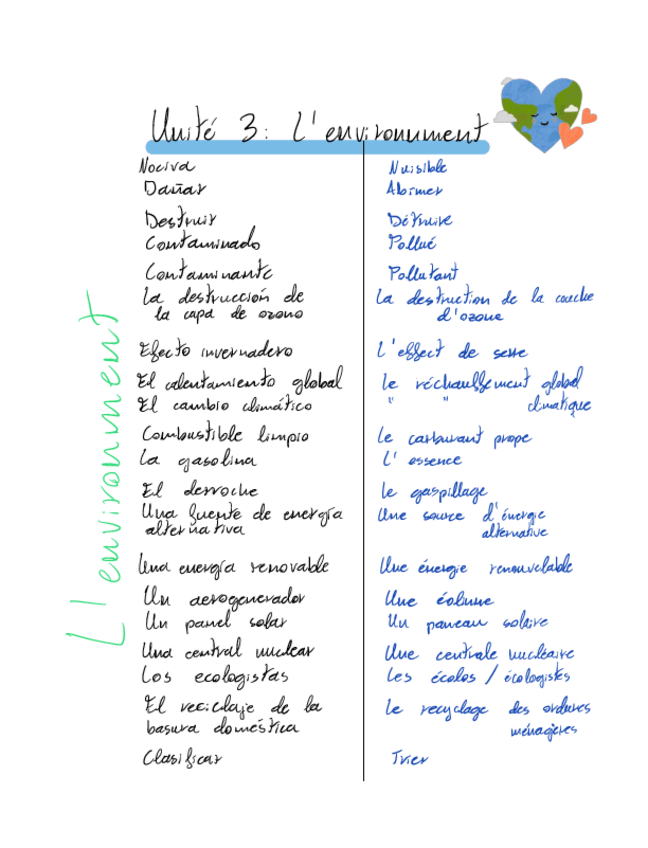 Unité 3: L'environnment
Nociva Nuisible
Dañar Abîmer
Destruir Détruire
Contaminado Pollué
Contaminante Pollutant
La destrucción de La destruction de la couche
la capa de ozono d'ozone
Efecto invernadero L'effect de serre
El calentamiento global Le réchauffement global
El cambio climático " " climatique
Combustible limpio Le carburant prope
La gasolina L'essence
El derroche Le gaspillage
Una fuente de energía Une source d'énergie
alternativa alternative
Una energía renovable Une énergie renouvelable
Un aerogenerador Une éolinne
Un panel solar Un panneau solaire
Una central nuclear Une centrale nucléaire
Los ecologistas Les écolos / écologistes
El reciclaje de la Le recyclage des ordures
basura doméstica ménagères
Clasificar Trier
L'environnment